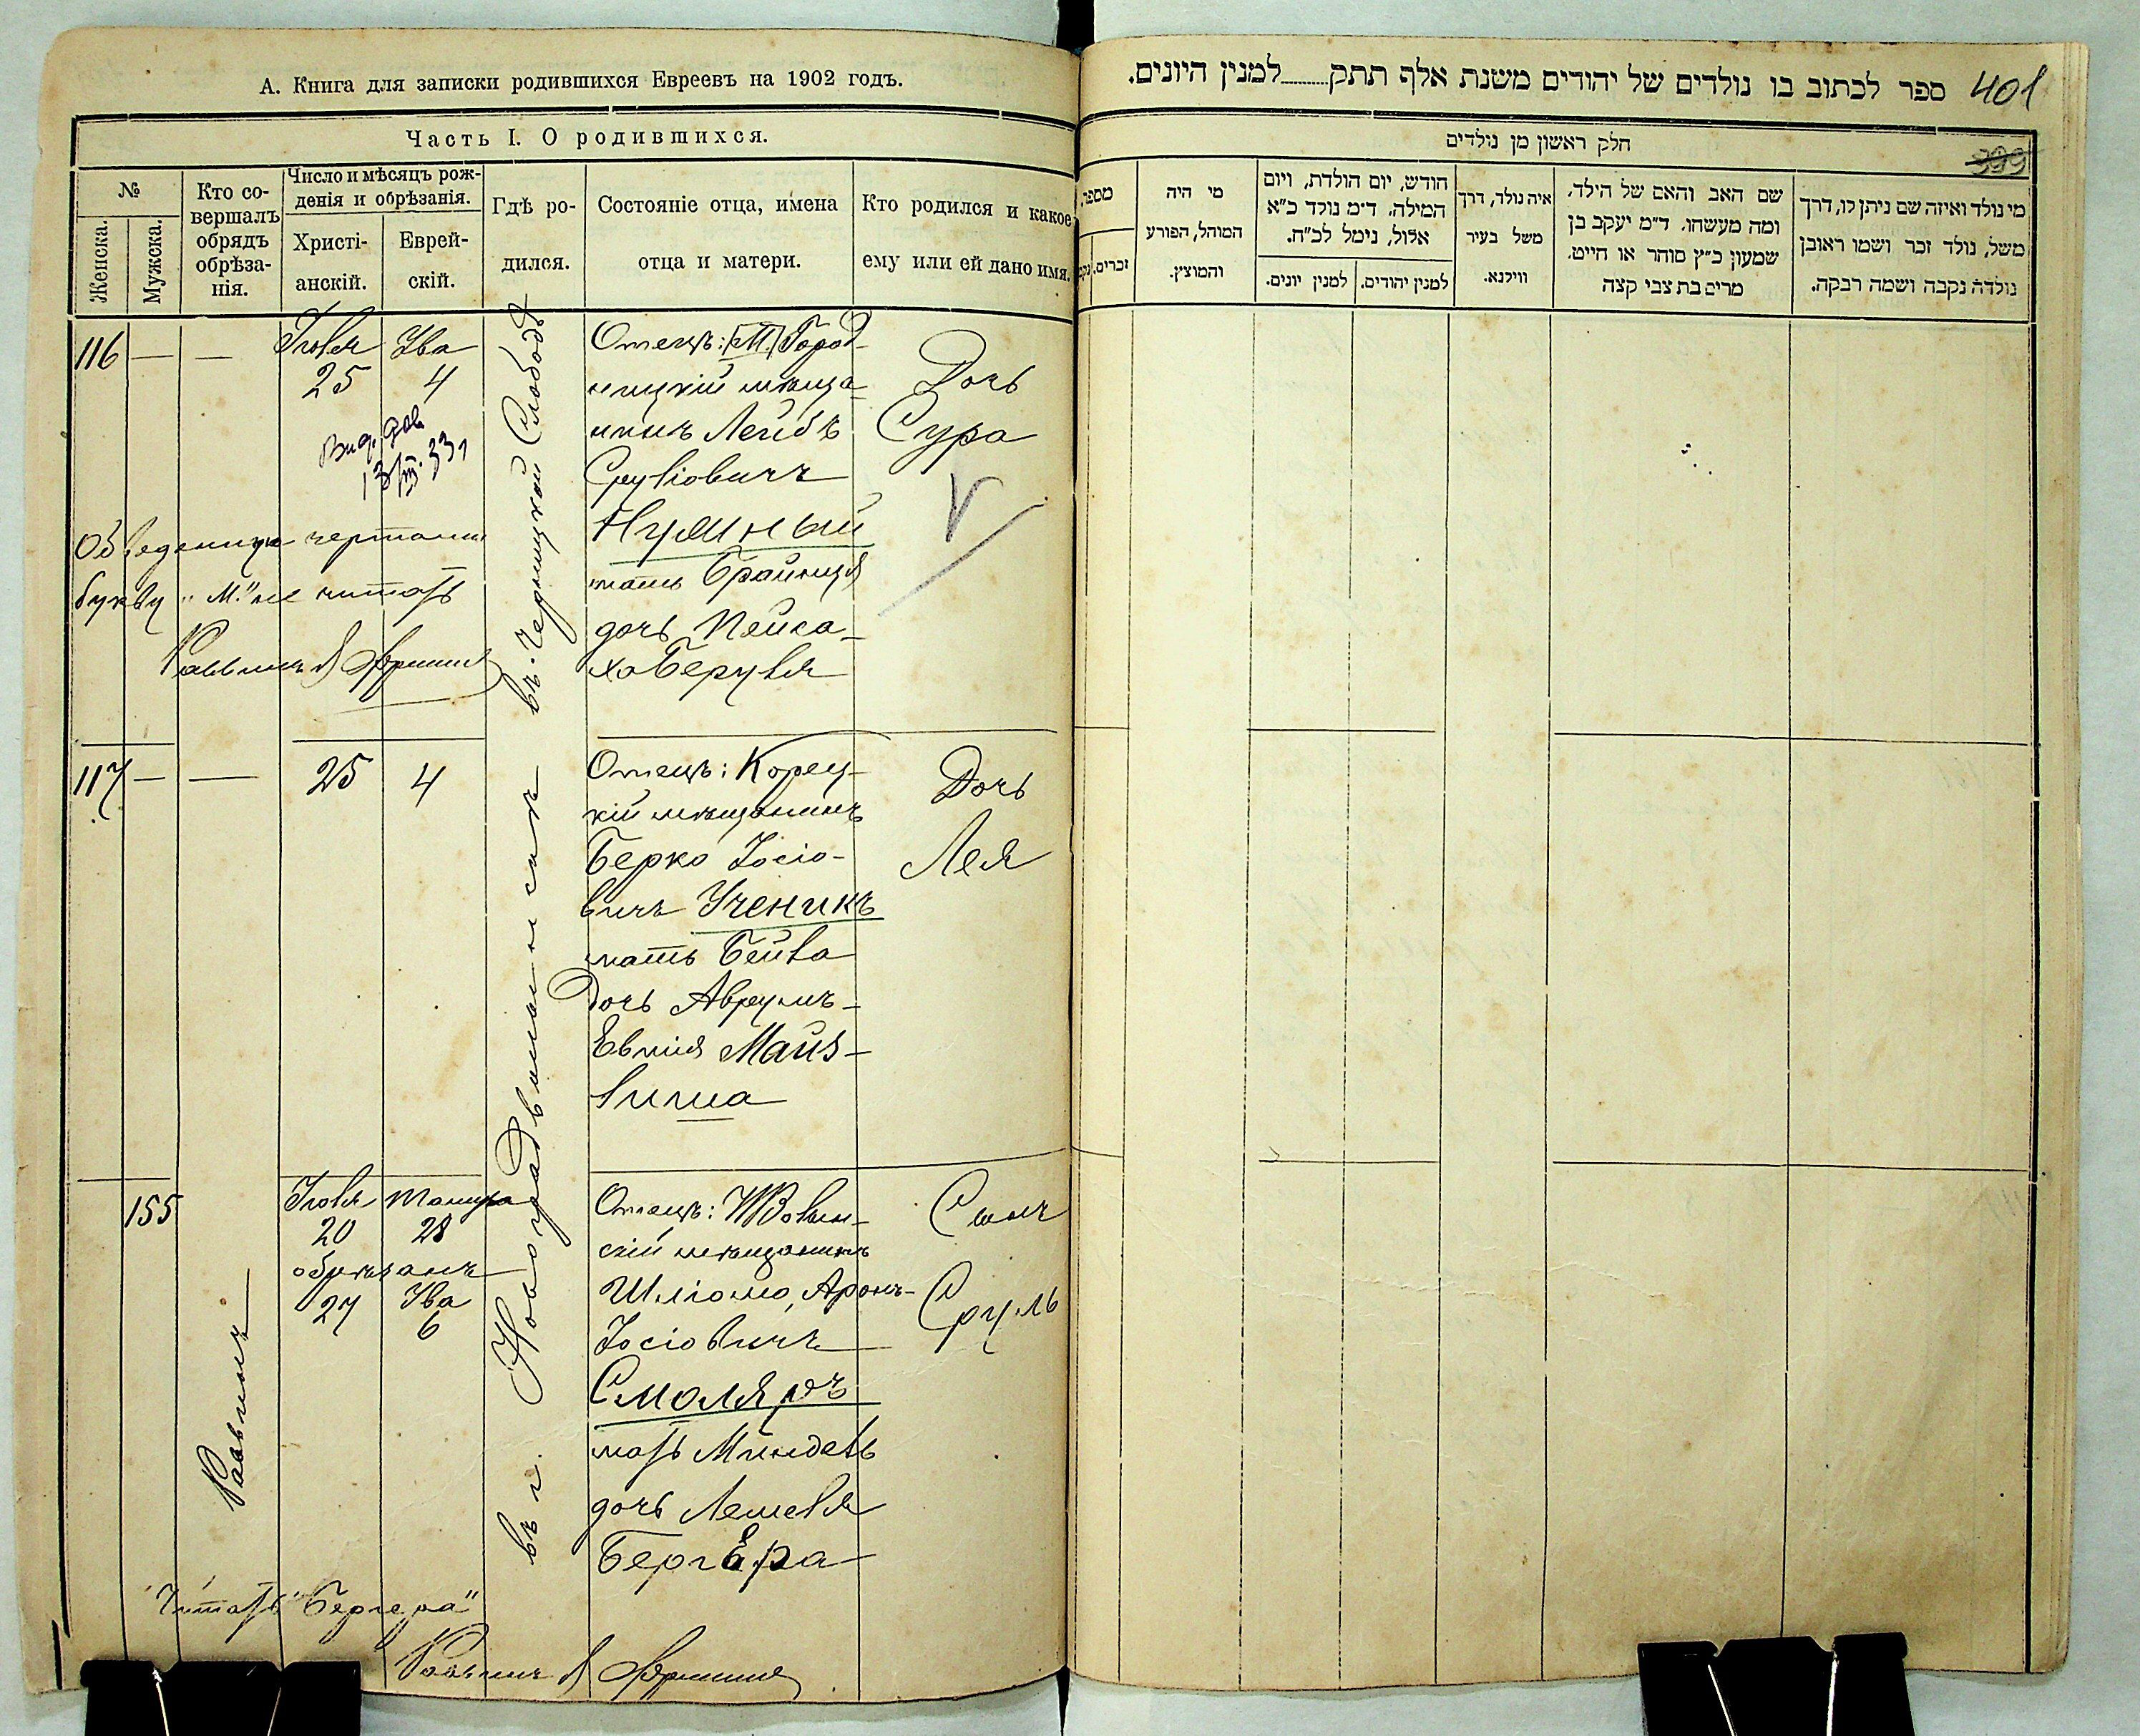 А. Книга для записки родившихся Евреевъ на 1902 годъ.
Часть I. О родившихся.
№
Женска.
Мужска.
Кто со-
вершалъ
обрядъ
обрѣза-
нія.
Число и мѣсяцъ рож-
денія и обрѣзанія.
Христі-
анскій.
Еврей-
скій.
Гдѣ ро-
дился.
Состояніе отца, имена
отца и матери.
Кто родился и какое
ему или ей дано имя.
116 — — Іюля Ува
25 4
Выд. дов
13/III.33
Обведенную чертами
букву "М." не читать
Раввинъ
въ. Черницкой Слободѣ
Отецъ: М. Город-
ницкій мѣща-
нинъ Лейбъ
Сруліовичъ
Нудиный
мать Брайндя
дочь Пейса-
хаБеруля
Дочь
Сура
117 — — 25 4
Отецъ: Корец-
кій мѣщанинъ
Берко Іосіо-
вичъ Ученикъ
мать Бейла
дочь Аврумъ-
Евшія Майз-
лиша
Дочь
Лея
155
Раввинъ
Іюля Тамуза
20 28
обрѣзанъ
27 Ува
6
въ г. Новоградволынскѣ
Отецъ:
скій мѣщанинъ
Шліома Аронъ-
Іосіовичъ
Смоляръ
мать Миндель
дочь Лейзеля
БергЕра
Сынъ
Сруль
Читать "Бергера"
Раввинъ
ספר לכתוב בו נולדים של יהודים משנת אלף תתק למנין היונים.
401
399
חלק ראשון מן נולדים
מספר
זכרים.
מי היה
המוהל, הפורע
והמוצץ.
חודש, יום הולדת, ויום
המילה. ד״מ נולד כ״א
אלול, נימל לכ״ח.
למנין יונים.
למנין יהודים.
איה נולד, דרך
משל בעיר
ווילנא.
שם האב והאם של הילד,
ומה מעשהו. ד״מ יעקב בן
שמעון כ״ץ סוחר או חייט.
מרים בת צבי קצה
מי נולד ואיזה שם ניתן לו, דרך
משל, נולד זכר ושמו ראובן
נולדה נקבה ושמה רבקה.